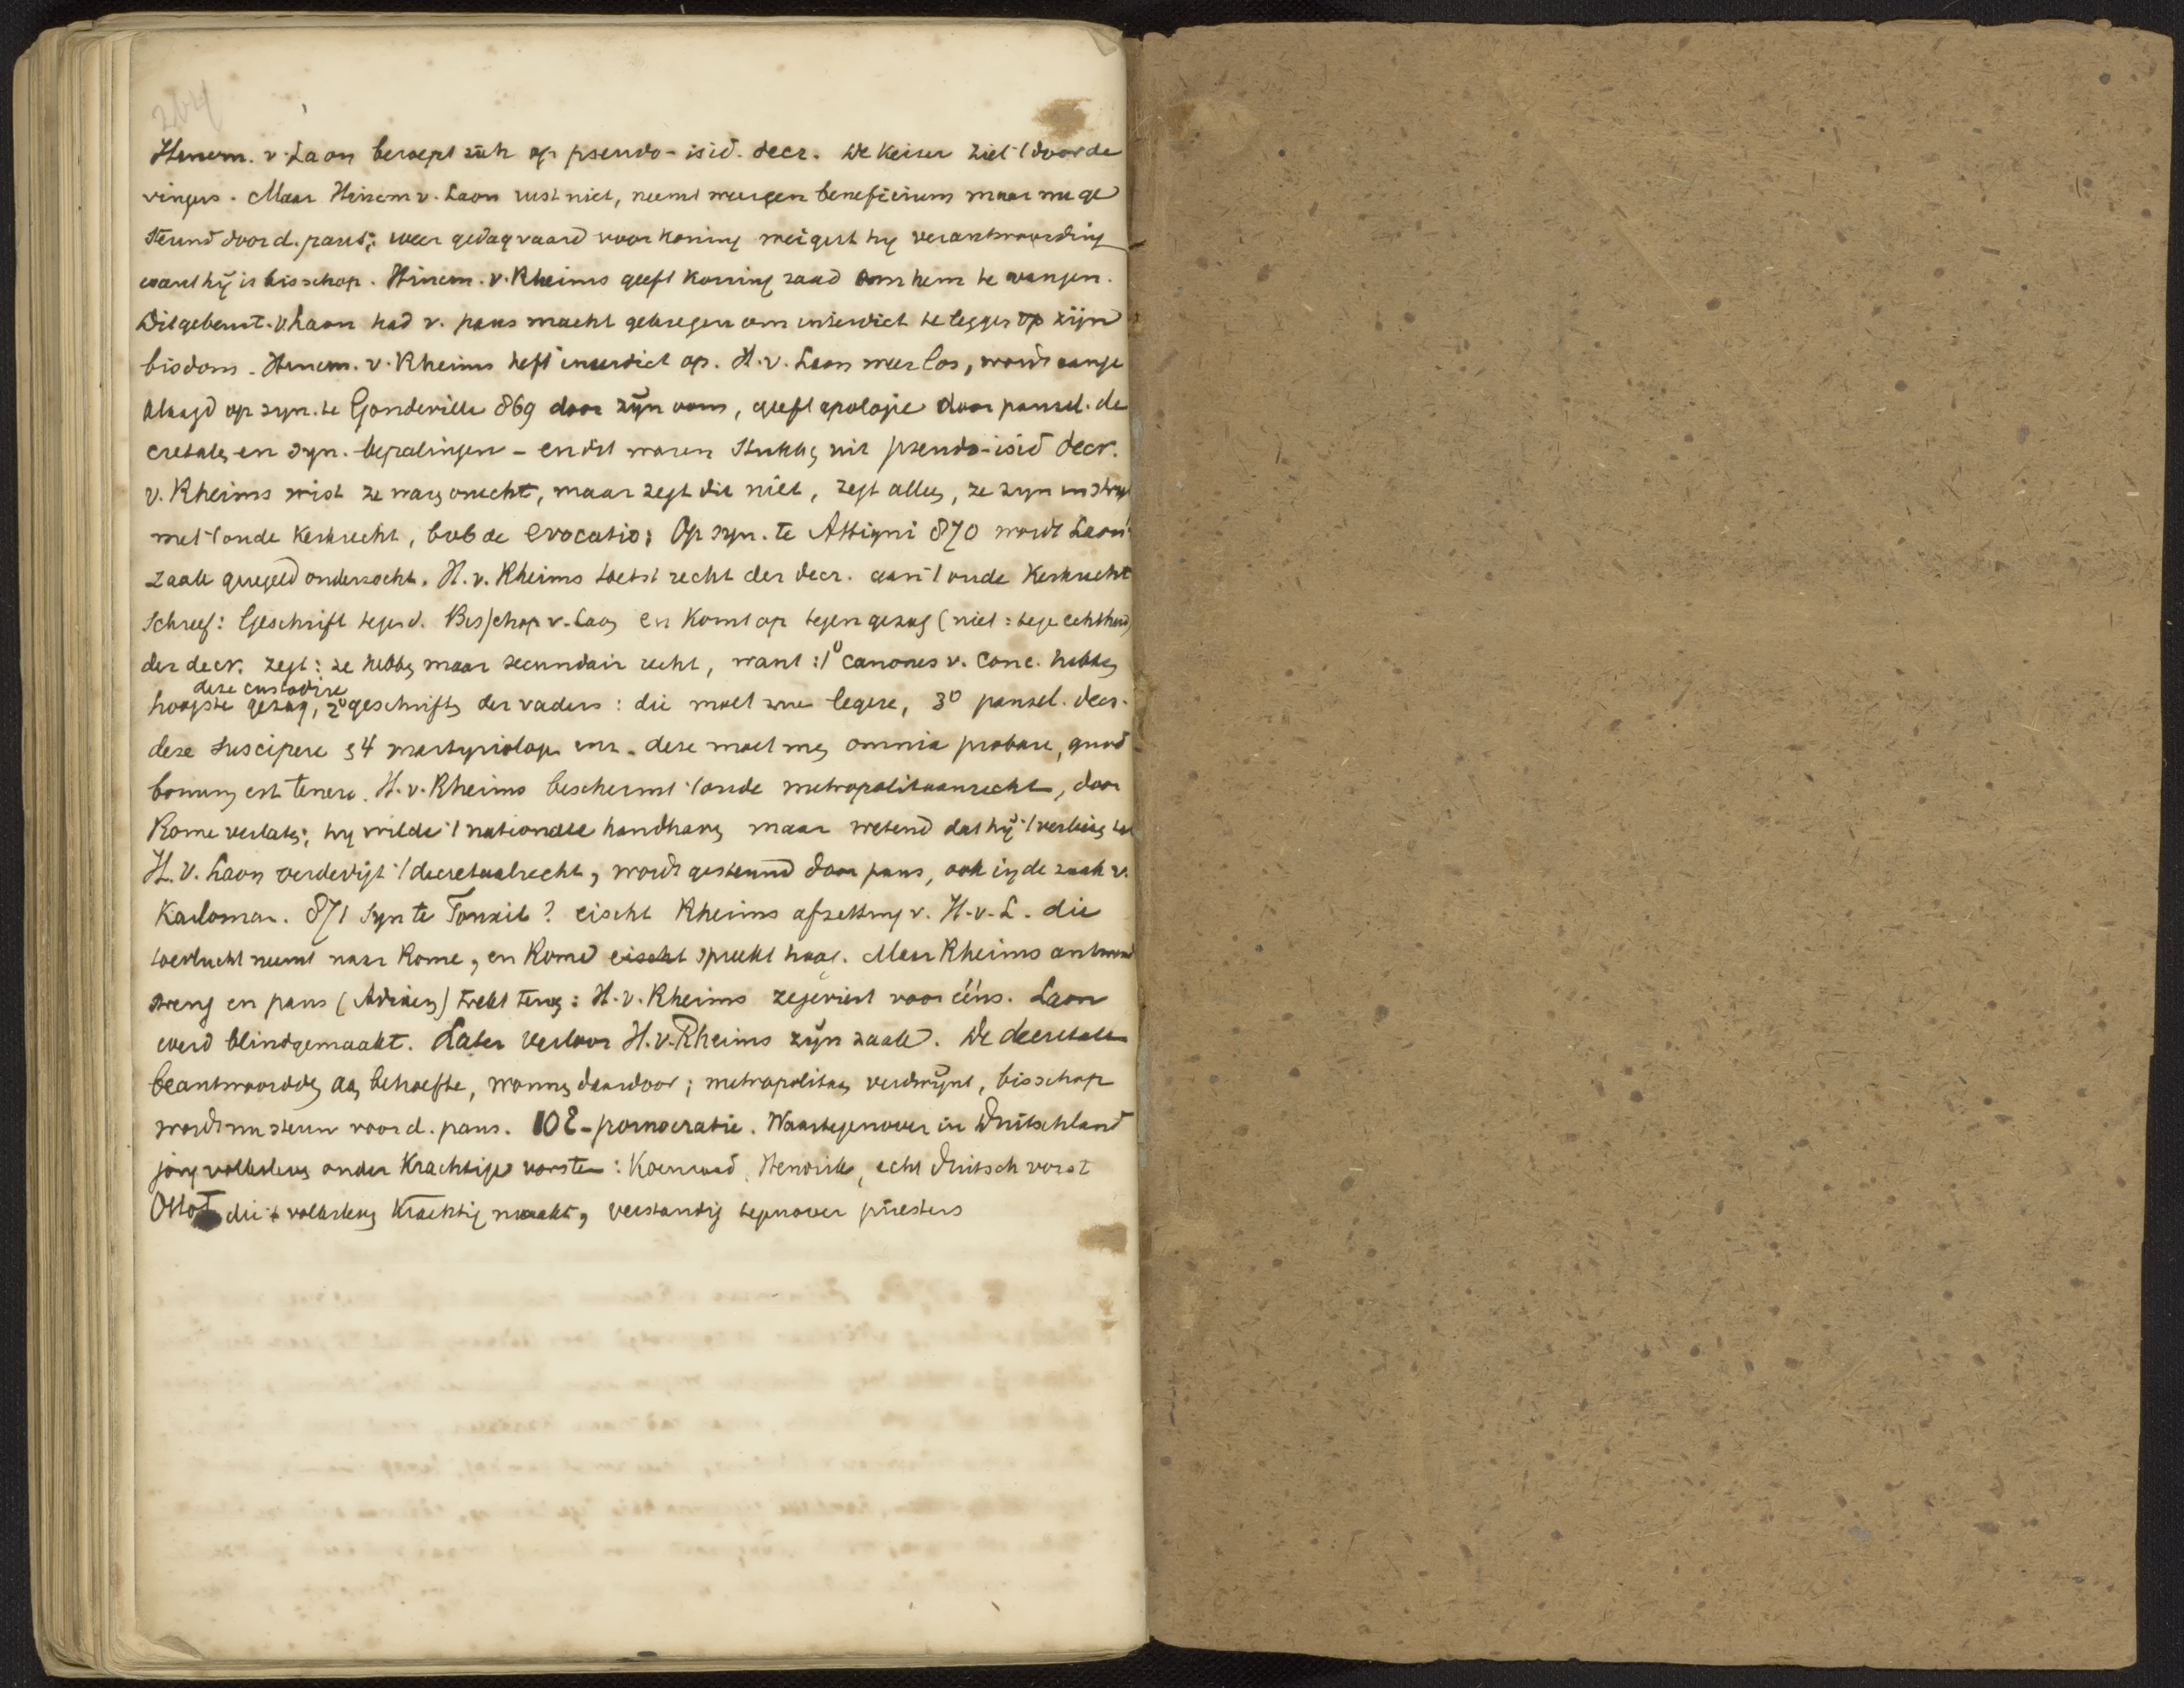 204
Hincm. v. Laon beroept zich op pseudo-isid. decr. De Keizer ziet 't door de
vingers. Maar Hincm v. Laon rust niet, neemt weer een beneficium maar nu ge
steund door d. paus; weer gedagvaard voor koning weigert hy verantwoording
want hij is bisschop. Hincm. v. Rheims geeft Koning raad om hem te vangen.
Dit gebeurt. v. Laon had v. paus macht gekregen om interdict te leggen op zijn
bisdom. Hincm. v. Rheims heft interdict op. H. v. Laon weer los, wordt aange
klaagd op syn. te Gondeville 869 door zijn oom, geeft apologie door pausel. de
cretales en syn. bepalingen - en dit waren stukken uit pseudo-isid decr.
v. Rheims wist ze waren onecht, maar zegt dit niet, zegt alleen, ze zyn in stryd
met 't oude Kerkrecht, bvb de evocatio; Op syn. te Attigni 870 wordt Laon's
zaak geregeld onderzocht. H. v. Rheims toetst recht der decr. aan 't oude Kerkrecht
Schreef: Geschrift tegen d. Bisschop v. Laon en Komt op tegen gezag (niet: tegen echtheid)
der decr. zegt: ze hebben maar secundair recht, want: 1º canones v. Conc. hebben
deze custodire
hoogste gezag, 2º geschriften der vaders: die moet men legere, 3º pausel. decr.
deze suscipere § 4 martyriologi enz. deze moet men omnia probare, quod
bonum est tenere. H. v. Rheims beschermt 't oude metropolitaanrecht, door
Rome verlaten; hy wilde 't nationale handhaven maar wetend dat hij 't verliezen
H. v. Laon verdedigt 't decretaalrecht, wordt gesteund door paus, ook in de zaak v.
Karloman. 871 Syn te Touxil? eischt Rheims afzetting v. H. v. L. die
toevlucht neemt naar Rome, en Rome eischt spreekt hoog. Maar Rheims antwoord
streng en paus (Adriaen) trekt terug: H. v. Rheims zegeviert voor ééns. Laon
werd blindgemaakt. Later verloor H. v. Rheims zijn zaak. De decretalen
beantwoordden aan behoefte, wonnen daardoor; metropolitaan verdwijnt, bisschop
wordt nu steun voor d. paus. 10e - pornocratie. Waartegenover in Duitschland
jong volksleven onder Krachtige vorsten: Koenraad, Hendrik, echt Duitsch vorst
Otto I die 't volksleven Krachtig maakt, verstandig tegenover priesters